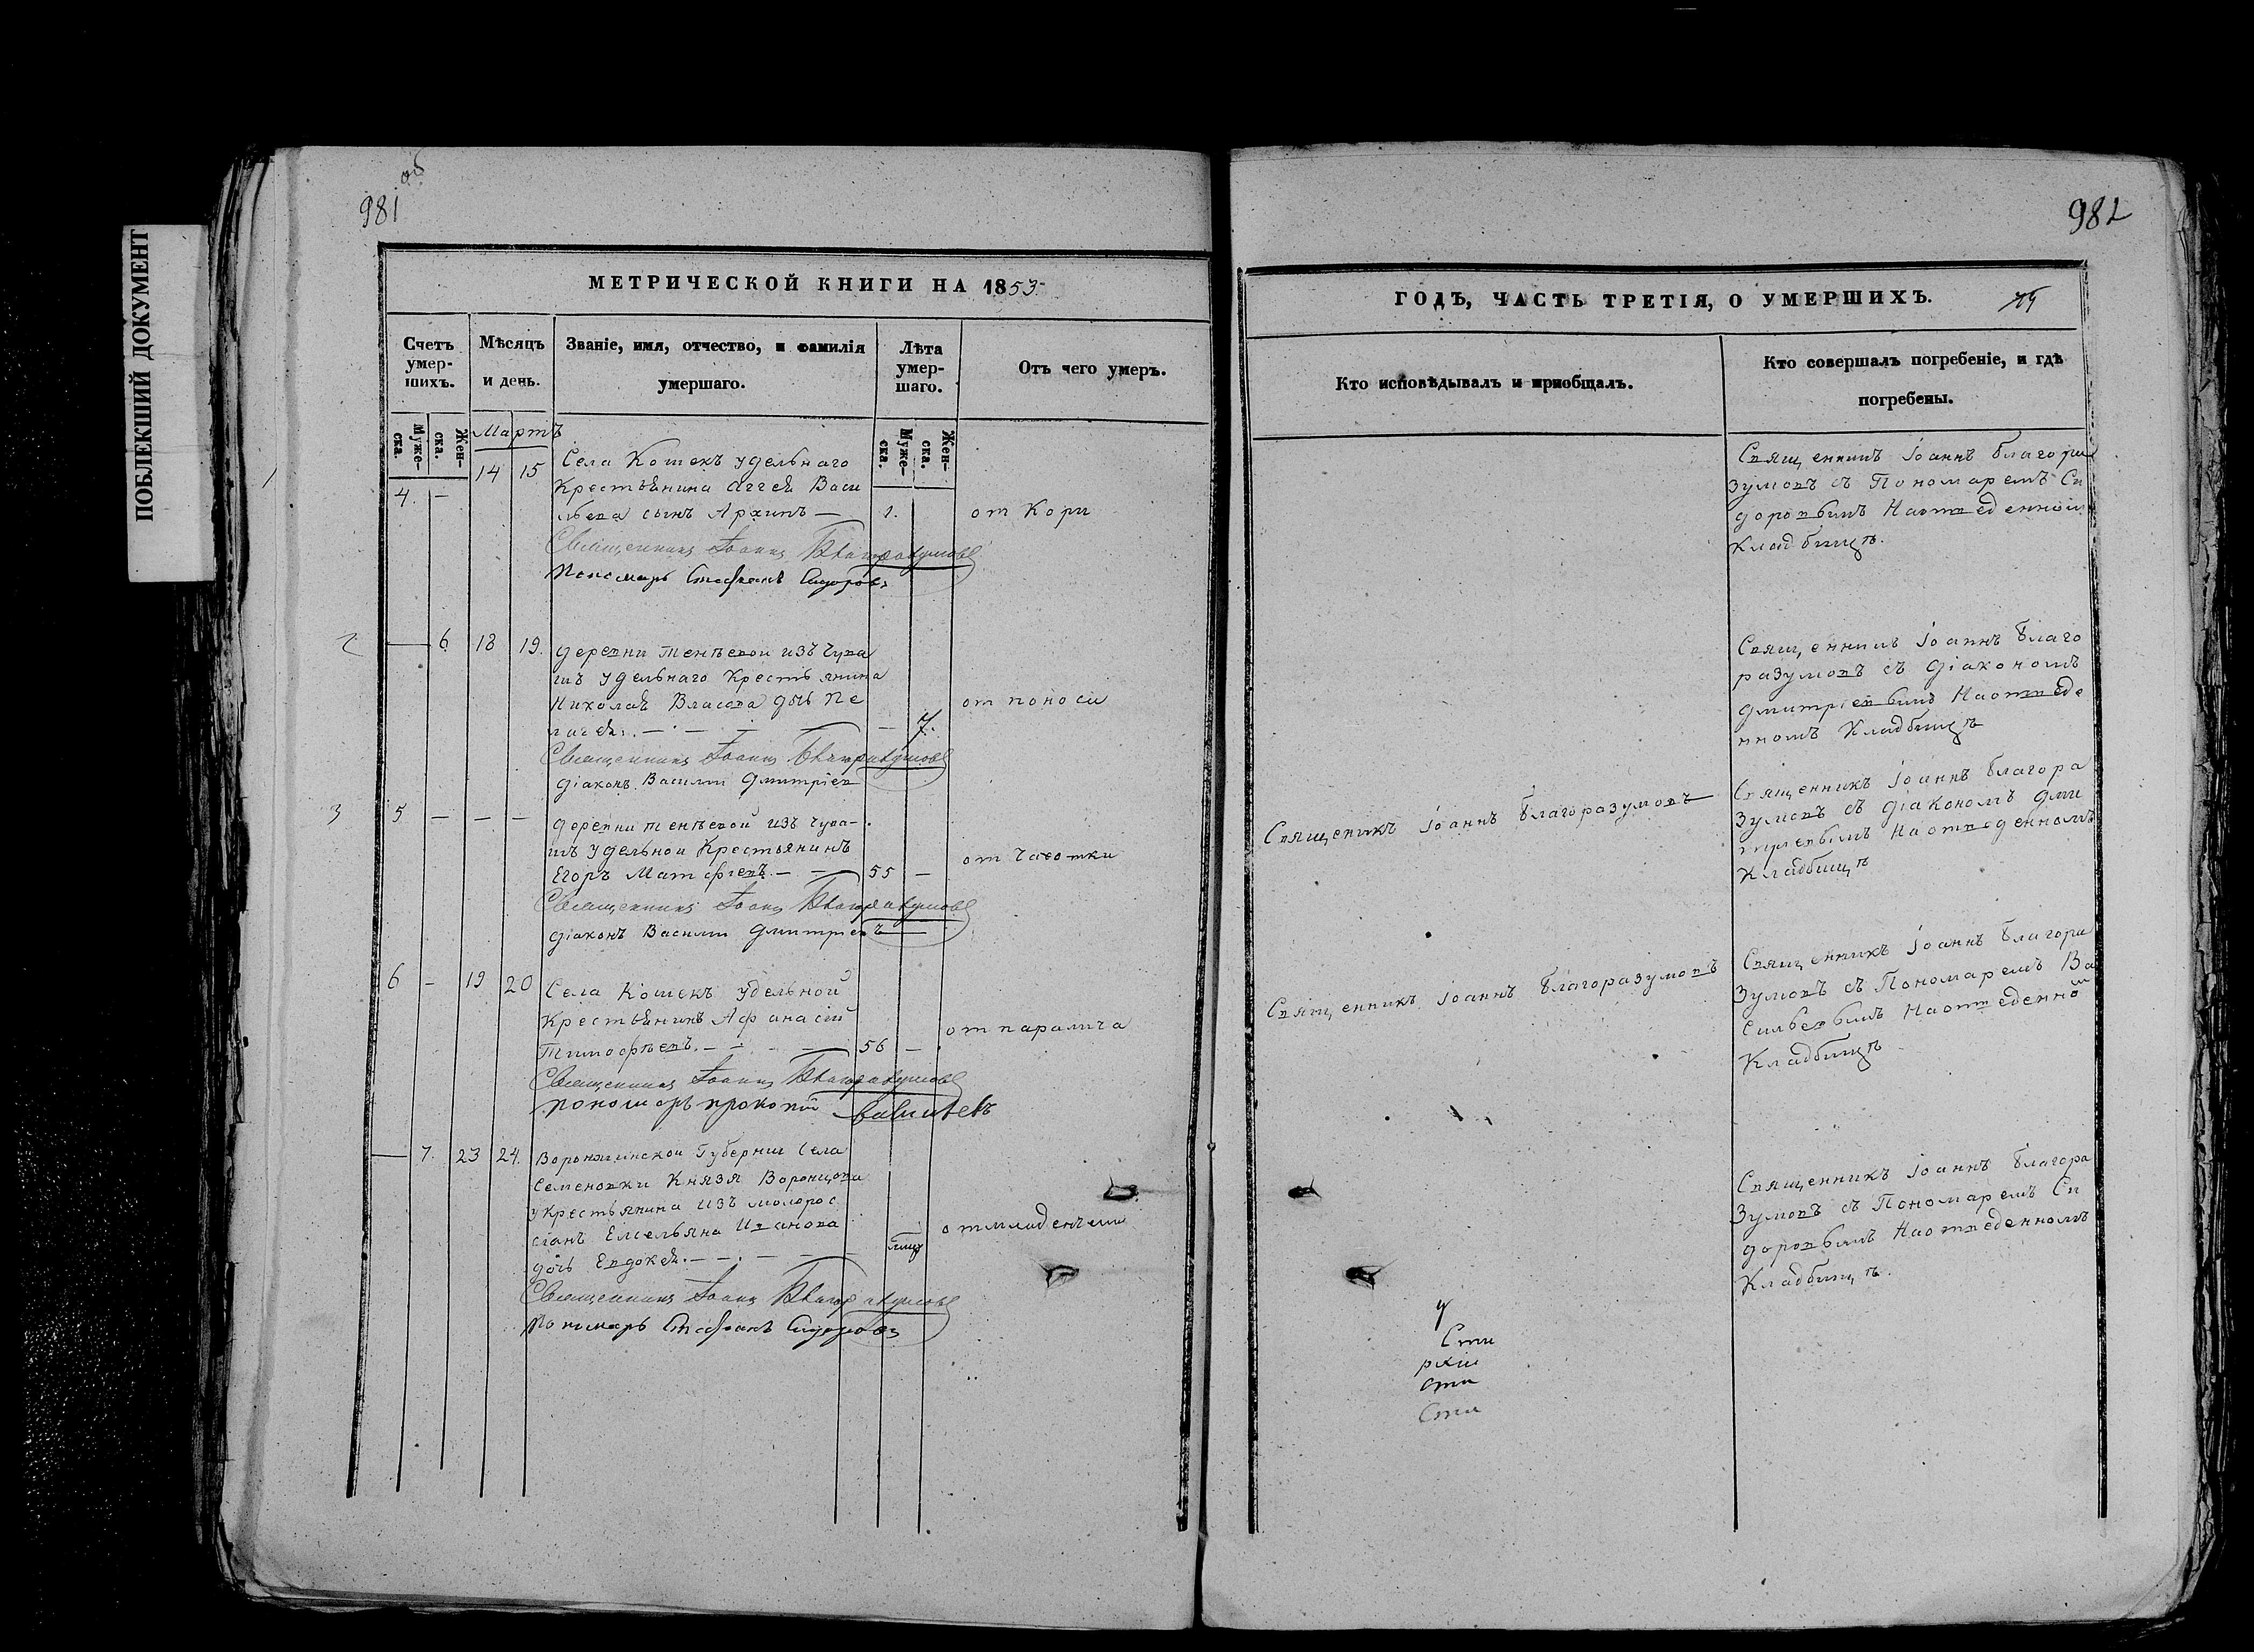 ПОБЛЕКШИЙ ДОКУМЕНТ
981 об
МЕТРИЧЕСКОЙ КНИГИ НА 1853.
Счетъ умер-шихъ.
Мѣсяцъ и день.
Званіе, имя, отчество, и фамилія умершаго.
Лѣта умер-шаго.
Отъ чего умеръ.
Муже-ска.
Жен-ска.
Мартъ
Муже-ска.
Жен-ска.
1
4. — 14 15
Села Кошекъ удельнаго
Крестьянина Аггея Васи
льева сынъ Архипъ — 1. от Кори
Священникъ Іоаннъ Благоразумовъ
Пономарь Стефанъ Сидоровъ
2
— 6 18 19.
деревни тенѣевой изъ чува
шъ удельнаго Крестьянина
Николая Власова дочь Пе
лагея. — 7. от поноса
Священникъ Іоаннъ Благоразумовъ
діаконъ Василий Дмитріев
3
5 — — —
деревни тенѣевой изъ чува-
шъ удельной Крестьянинъ
Егоръ Матфѣевъ. — 55 — от Чесотки
Священникъ Іоаннъ Благоразумовъ
діаконъ Василий Дмитріевъ
6 — 19 20
Села Кошекъ удельной
Крестьянинъ Афанасій
Тимофѣевъ. — 56 — от паралича
Священникъ Іоаннъ Благоразумовъ
пономарь прокопій Васильевъ
— 7. 23 24.
Воронжинской Губернии Села
Семеновки Князя Воронцова
Крестьянина изъ молорос
сіанъ Емельяна Иванова
дочь Евдокея. — от младенчеи
Священникъ Іоаннъ Благоразумовъ
Пономарь Стефанъ Сидоровъ
982
ГОДЪ, ЧАСТЬ ТРЕТІЯ, О УМЕРШИХЪ.
Кто исповѣдывалъ и приобщалъ.
Кто совершалъ погребеніе, и гдѣ погребены.
Священникъ Іоаннъ благора
зумовъ съ Пономаремъ Си
доровымъ На отведенном
Кладбищѣ.
Священникъ Іоаннъ благо
разумовъ съ діакономъ
Дмитріевымъ На отведе
нномъ Кладбищѣ
Священикъ Іоаннъ благоразумовъ
Священникъ Іоаннъ благора
зумовъ съ діакономъ Дми
тріевымъ На отведенномъ
Кладбищѣ
Священникъ Іоаннъ благоразумовъ
Священникъ Іоаннъ благора
зумовъ съ Пономаремъ Ва
сильевымъ На отведенном
Кладбищѣ
Священникъ Іоаннъ благора
зумовъ съ Пономаремъ Си
доровымъ На отведенномъ
Кладбищѣ.